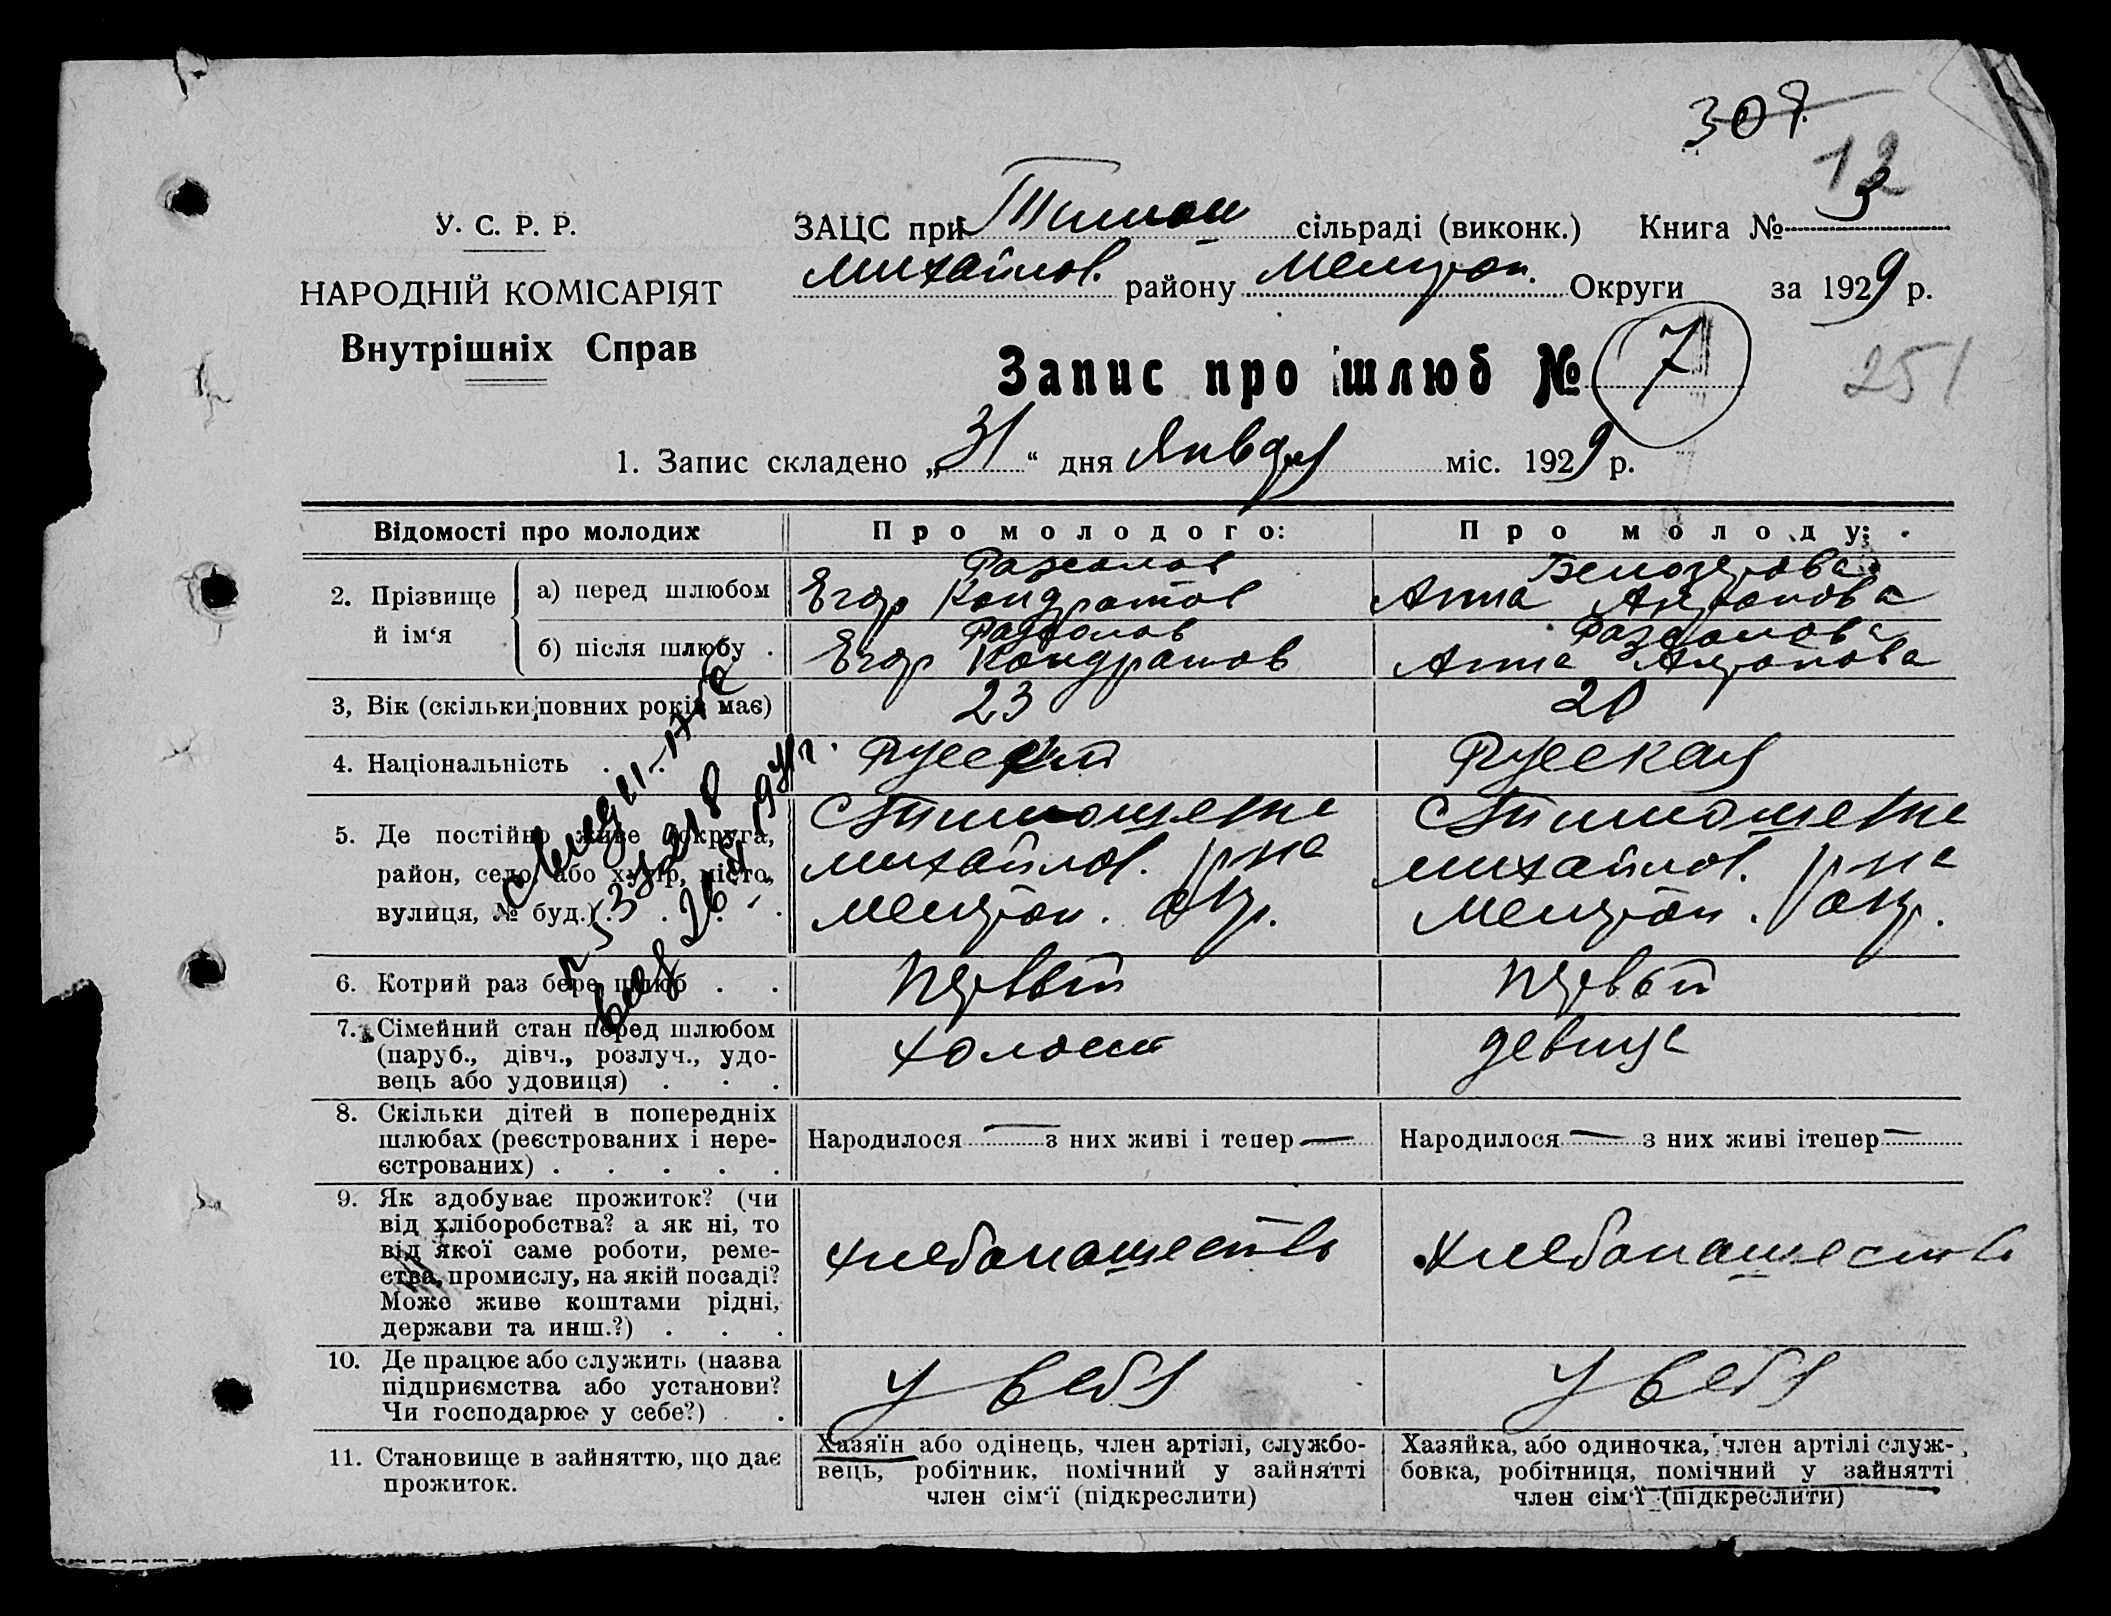 307
12
У. С. Р. Р.
НАРОДНІЙ КОМІСАРІЯТ
Внутрішніх Справ
ЗАЦС при Тимош сільраді (виконк.) Книга № 3
Михайлов. району Мелитоп. Округи за 1929 р.
Запис про шлюб № 7
251
1. Запис складено „31“ дня Января міс. 1929 р.
Відомості про молодих
Про молодого:
Про молоду:
2. Прізвище й ім‘я
а) перед шлюбом
Егор Кондратов
Белозерова
Анна
б) після шлюбу .
Егор Кондратов
Анна
3, Вік (скільки повних років має)
23
20
4. Національність . .
Русский
Русская
5. Де постійно живе (округа,
район, село або хутір, місто,
вулиця, № буд.) . . . .
С Тимошевке
Михайлов. р-на
Мелитоп. окр.
С Тимошевке
Михайлов. р-на
Мелитоп. окр.
6. Котрий раз бере шлюб . .
Первый
Первый
7. Сімейний стан перед шлюбом
(паруб., дівч., розлуч., удо-
вець або удовиця) . . .
холост
девица
8. Скільки дітей в попередніх
шлюбах (реєстрованих і нере-
єстрованих) . . . . .
Народилося — з них живі і тепер —
Народилося — з них живі ітепер —
9. Як здобуває прожиток? (чи
від хліборобства? а як ні, то
від якої саме роботи, реме-
ства, промислу, на якій посаді?
Може живе коштами рідні,
держави та инш.?) . . .
хлебопашеств
хлебопашеств
10. Де працює або служить (назва
підприємства або установи?
Чи господарює у себе?) .
у себя
у себя
11. Становище в зайняттю, що дає
прожиток.
Хазяїн або одінець, член артілі, службо-
вець, робітник, помічний у зайнятті
член сім‘ї (підкреслити)
Хазяйка, або одиночка, член артілі служ-
бовка, робітниця, помічний у зайнятті
член сім‘ї (підкреслити)